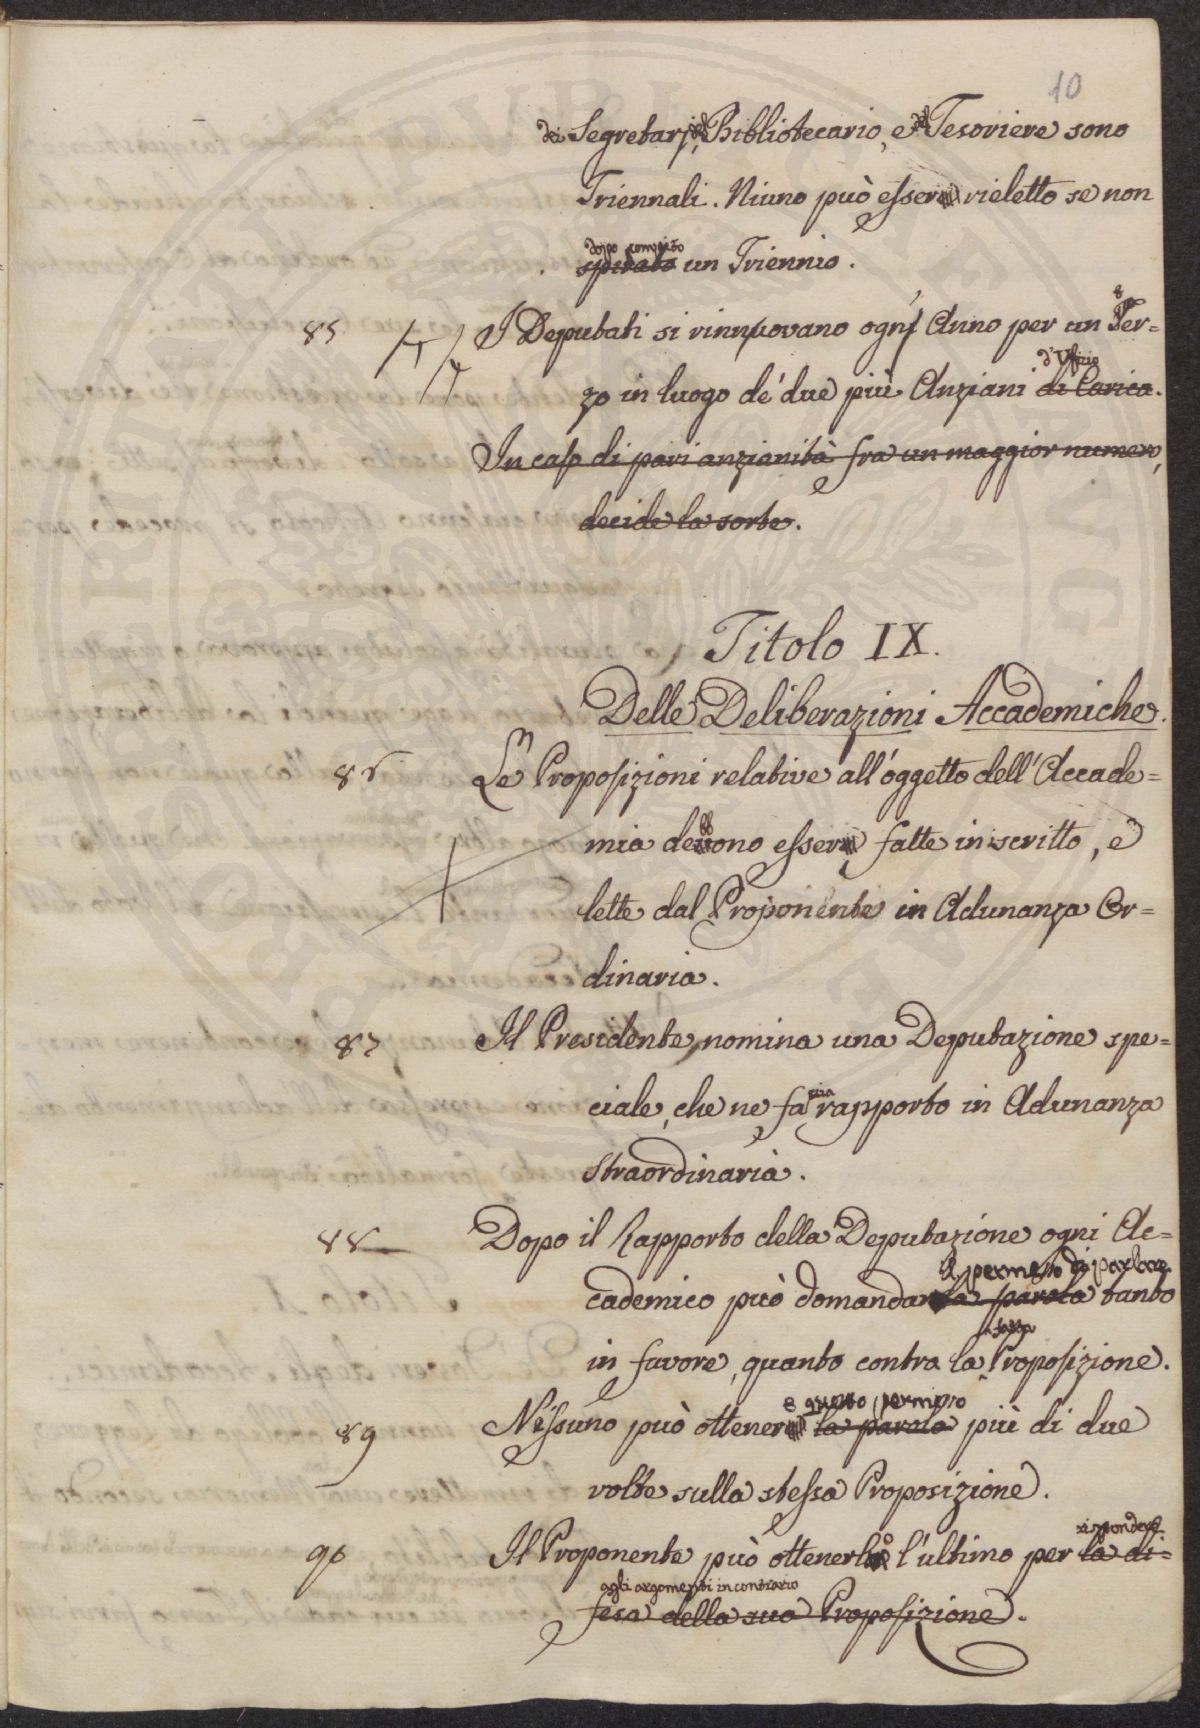 10
dei Segretarj, del Bibliotecario, e del Tesoriere sono
Triennali. Niuno può esser rieletto se non
dopo compito
spirato un Triennio.
85 I Deputati si rinnuovano ogni Anno per un Ter=
d'Ufficio
zo in luogo de' due più Anziani di Carica.
In caso di pari anzianità fra un maggior numero,
decide la sorte.
Titolo IX.
Delle Deliberazioni Accademiche.
86 Le Proposizioni relative all'oggetto dell'Accade=
mia debbono esser fatte in iscritto, e
lette dal Proponente in Adunanza Or=
dinaria.
87 Il Presidente nomina una Deputazione spe=
ciale, che ne fa rapporto in Adunanza
straordinaria.
88 Dopo il Rapporto della Deputazione ogni Ac=
il permesso di parlare
cademico può domandar la parola tanto
fatta
in favore, quanto contro la Proposizione.
e questo permesso
89 Nessuno può ottener la parola più di due
volte sulla stessa Proposizione.
rispondere
90 Il Proponente può ottenerlo l'ultimo per la di=
agli argomenti in contrario
fesa della sua Proposizione.